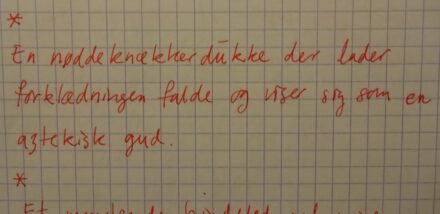 *
En nøddeknækkerdukke der lader
forklædningen falde og viser sig som en
aztekisk gud.
*
Et